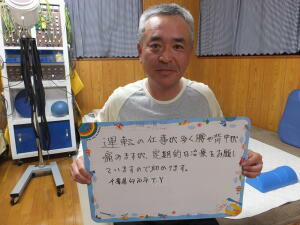 運転の仕事が多く腰や背中が
痛みますが、定期的な治療をお願し
ていますので助かります。
千葉県 T.Y